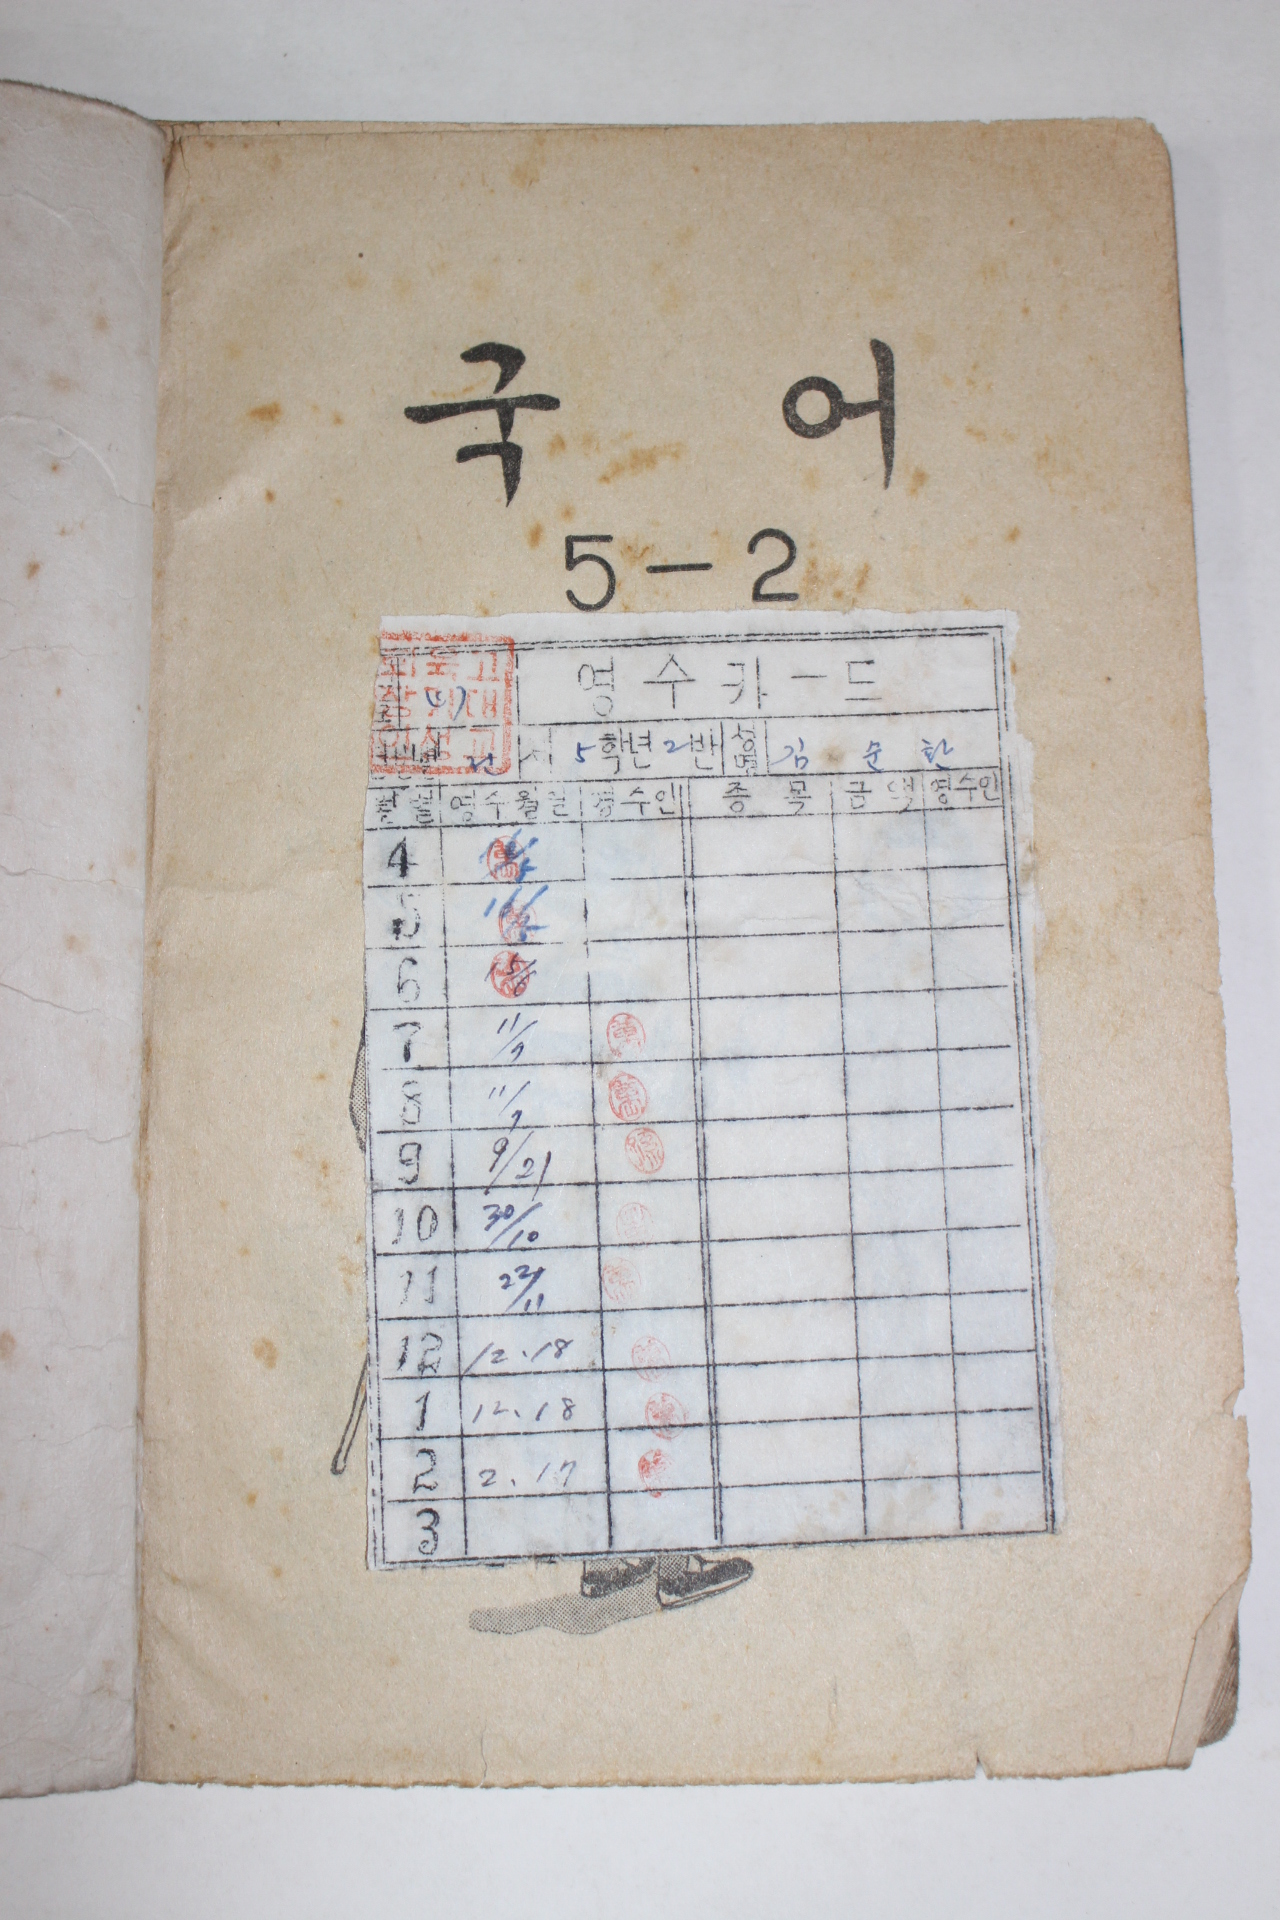 국 어
5-2
영수카-드
5학년 2반 성명 김순한
월별 영수월일 영수인 종목 금액 영수인
4
5
6 15/6
7 11/7
8 11/7
9 9/21
10 30/10
11 22/11
12 12.18
1 12.18
2 2.17
3